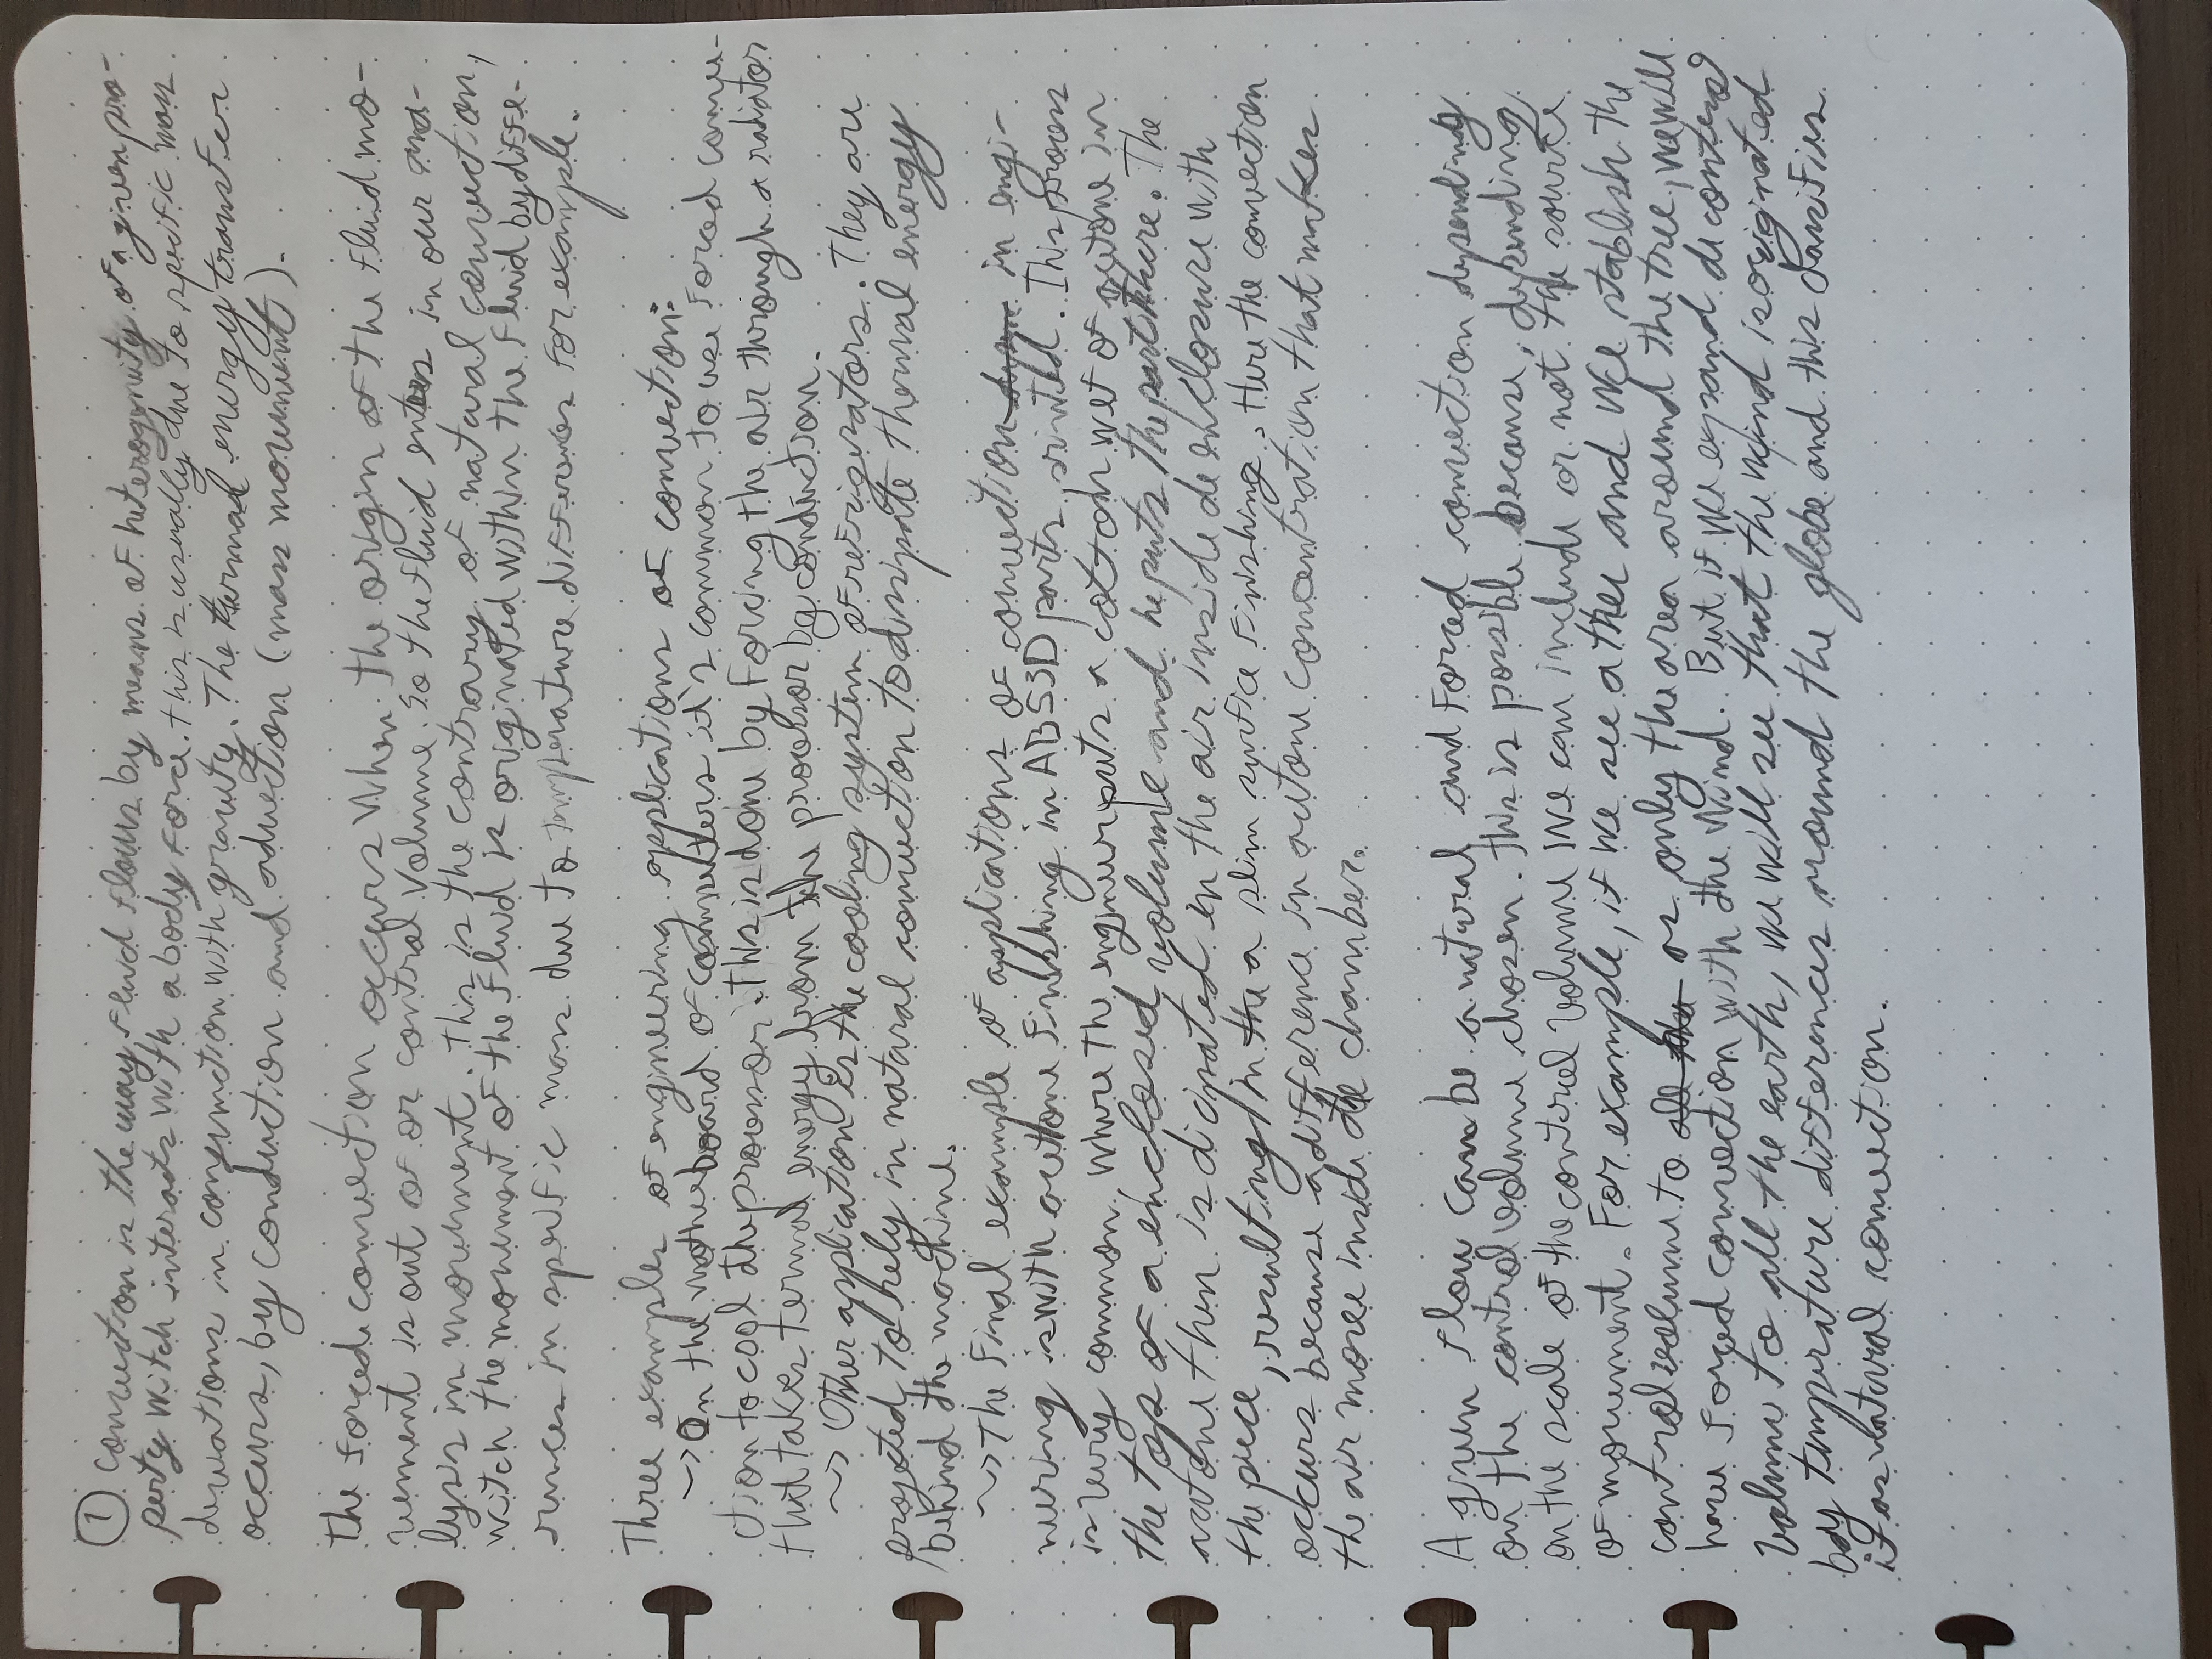 ① Convection is the way fluid flows by means of heterogenuity of a given pro-
perty witch interacts with a body force. this is usually due to specific mass
deviations in conjunction with gravity. The termal energy transfer
occurs, by conduction and advection (mass movement).
The forced convection occurs when the origin of the fluid mo-
vement is out of or control volume. So the fluid enters in our ana-
lysis in movement. This is the contrary of natural convection,
witch the movement of the fluid is originated within the fluid by diffe-
rences in specific mass due to temperature differences for example.
Three examples of engineering applications of convection:
~> On the motherboard of computers it's common to use forced convec-
tion to cool the processor. This is done by forcing the air through a radiator
that takes termal energy from the processor by conduction.
~> Other application is the cooling system of refrigerators. They are
projected to rely in natural convection to disipate thermal energy
behind the machine.
~> The final example of applications of convection in engi-
neering is with acetone finishing in ABS 3D parts printed. This process
is very common, where the engineer puts a cotton wet of acetone in
the top of a enclosed volume and he puts the part there. The
acetone then is dicipated in the air inside de enclosure with
the piece, resulting in a slim surfice finishing. Here the convection
occurs because a difference in acetone concentration that makes
the air move inside the chamber.
A given flow can be a natural and forced convection depending
on the control volume chosen. This is possible because, depending
on the scale of the control volume we can include or not the source
of movement. For example, if we see a thee and we stablish the
control volume to as only the area around the tree, we will
have forced convection with the wind. But if we expand de control
volume to all the earth, we will see that the wind is originated
by temperature differences around the globe and this classifies
it as natural convection.